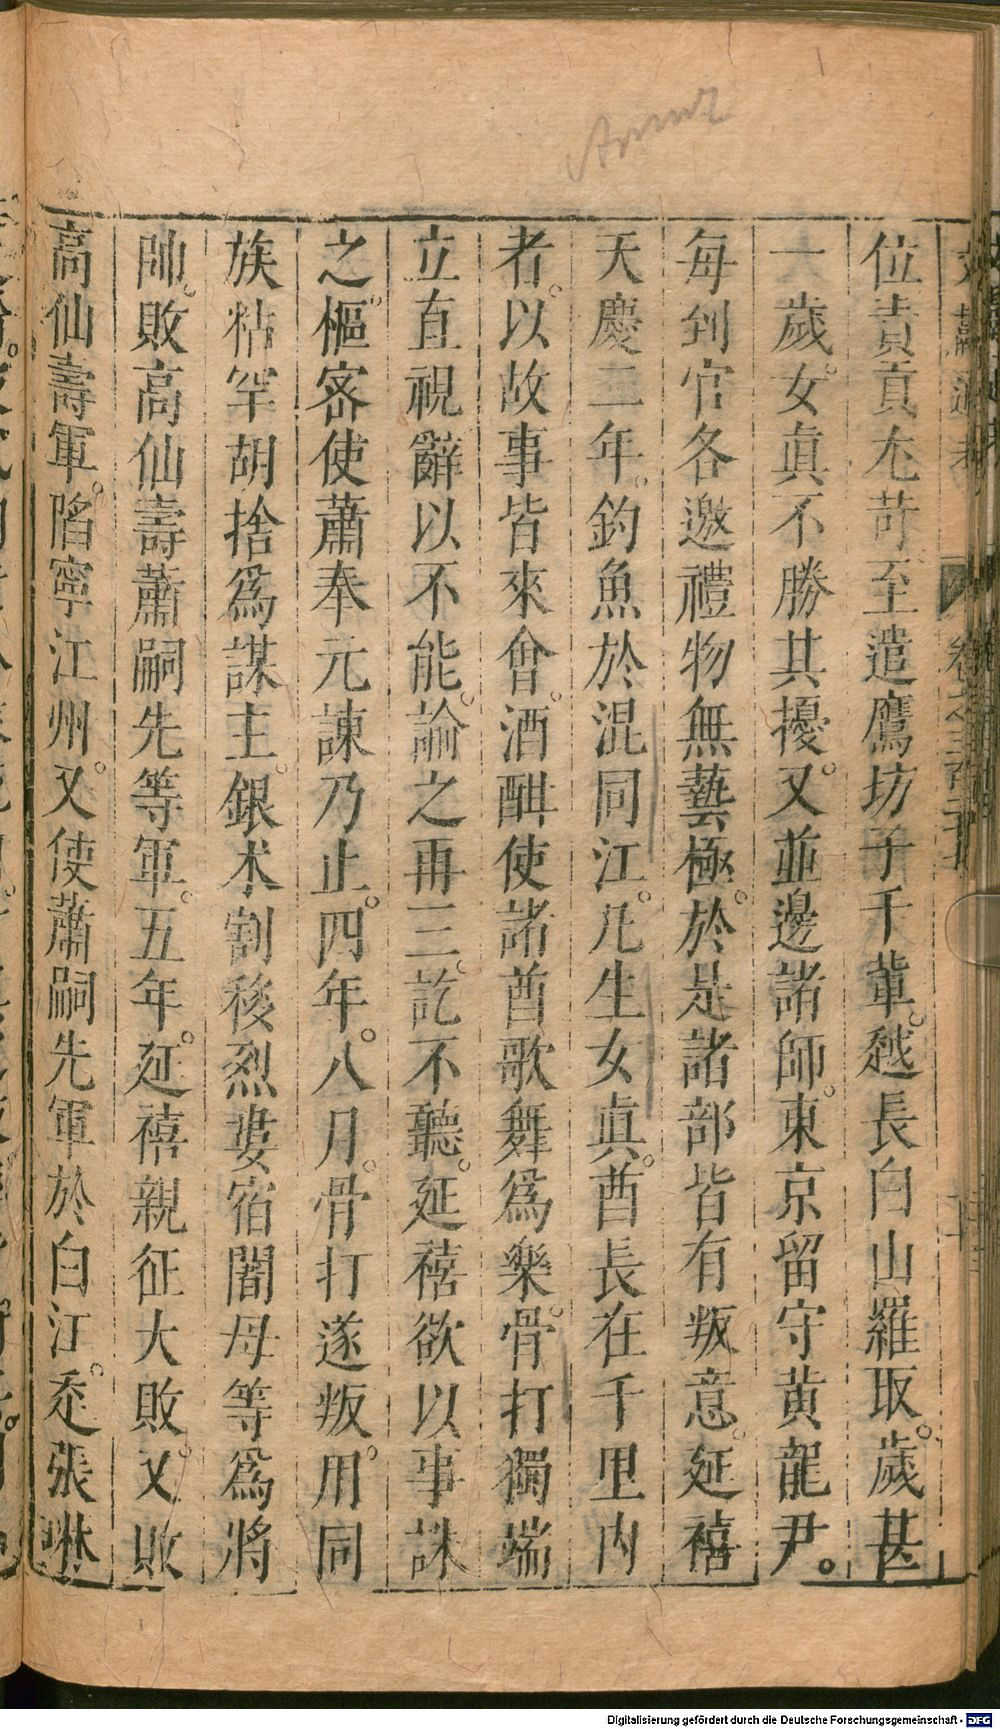 位責貢尤苛至遣鷹坊子千輩越長白山羅取歲甚
一歲女眞不勝其擾又並邊諸師東京留守黄龍尹
每到官各邀禮物無藝極於是諸部皆有叛意延禧
天慶二年釣魚於混同江凡生女眞酋長在千里内
者以故事皆來會酒酣使諸酋歌舞爲樂骨打獨端
立直視辭以不能諭之再三訖不聽延禧欲以事誅
之樞密使蕭奉元諫乃止四年八月骨打遂叛用同
族粘罕胡捨爲謀主銀术割移烈婁宿闍母等爲將
帥敗高仙壽蕭嗣先等軍五年延禧親征大敗又敗
高仙壽軍陷寧江州又使蕭嗣先軍於白江走張琳
Digitalisierung gefördert durch die Deutsche Forschungsgemeinschaft - DFG